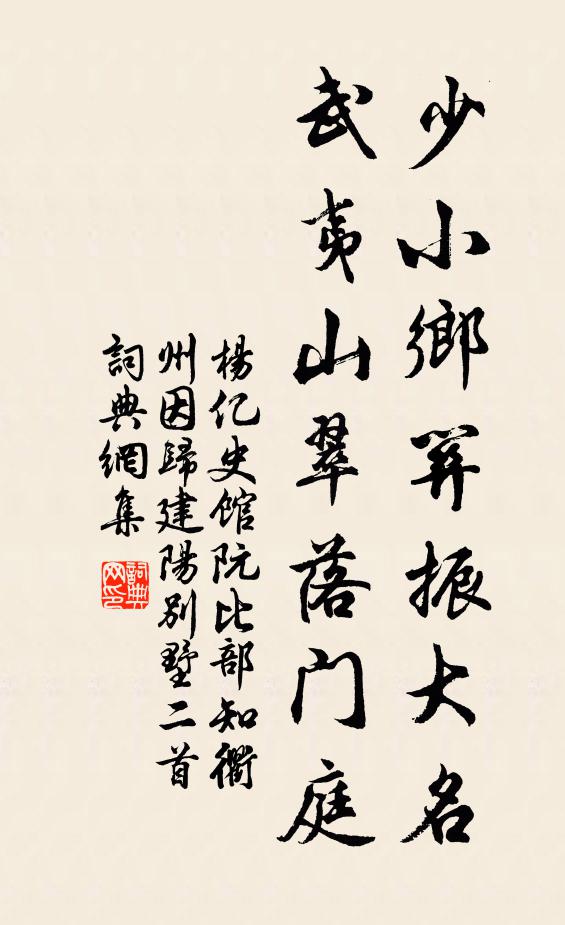 少小鄉關振大名
武夷山翠落門庭
楊亿史館阮比部知衢
州因歸建陽別墅二首
詞典網集
詞典网印